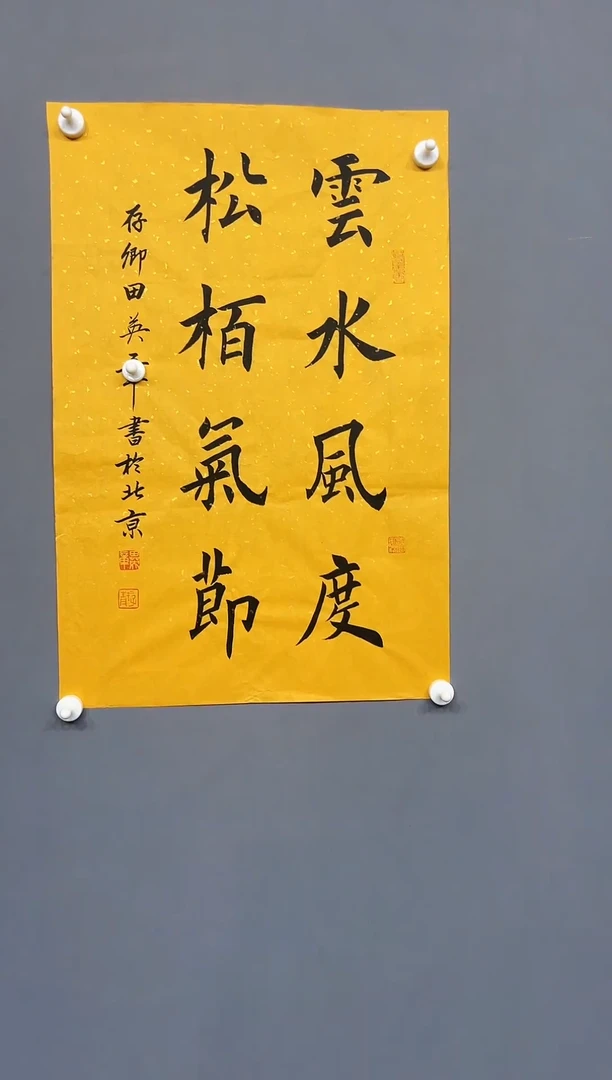 雲水風度
松栢氣節
存卿田英 書於北京